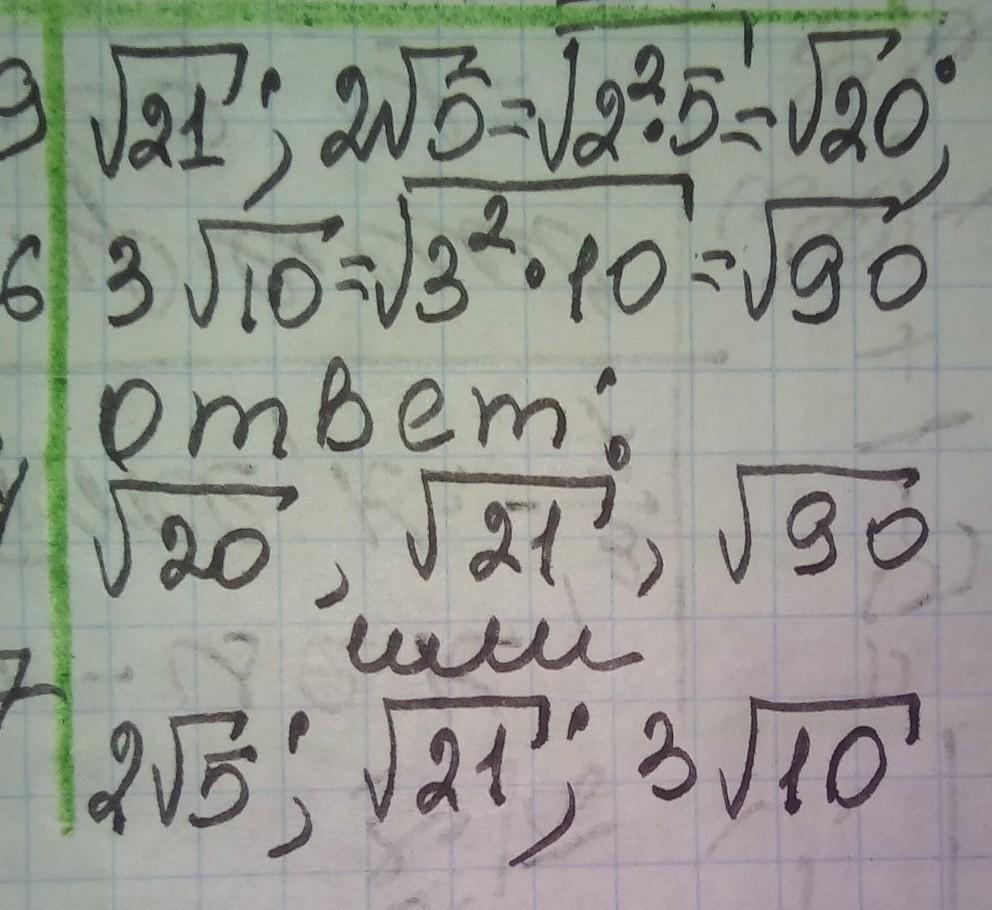 9 √21; 2√5=√2²·5=√20;
6 3√10=√3²·10=√90
ответ:
√20, √21, √90
или
7
2√5; √21; 3√10